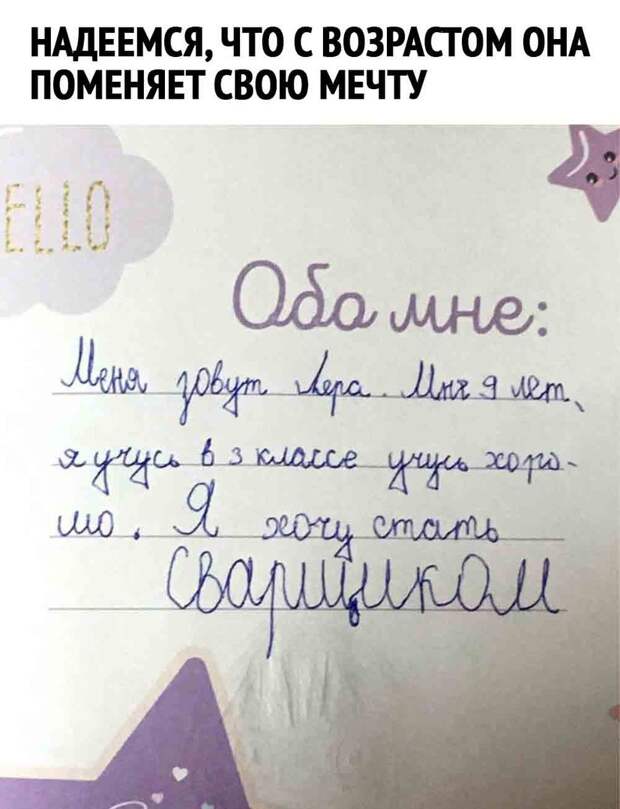 НАДЕЕМСЯ, ЧТО С ВОЗРАСТОМ ОНА
ПОМЕНЯЕТ СВОЮ МЕЧТУ
ELLO
Обо мне:
Меня зовут Лера. Мне 9 лет,
я учусь в 3 классе учусь хоро-
шо. Я хочу стать
Сварщиком